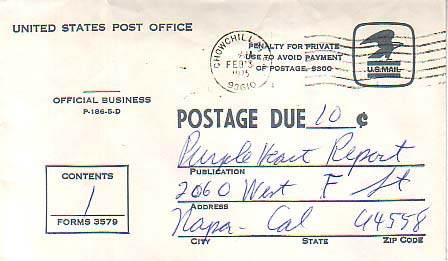 UNITED STATES POST OFFICE
CHOWCHILLA
FEB 13
1975
93610
PENALTY FOR PRIVATE
USE TO AVOID PAYMENT
OF POSTAGE, $300
U.S.MAIL
OFFICIAL BUSINESS
P-186-5-D
POSTAGE DUE 10 ¢
Purple Heart Report
PUBLICATION
2060 West F St
ADDRESS
Napa - Cal 94558
CITY STATE ZIP CODE
CONTENTS
1
FORMS 3579